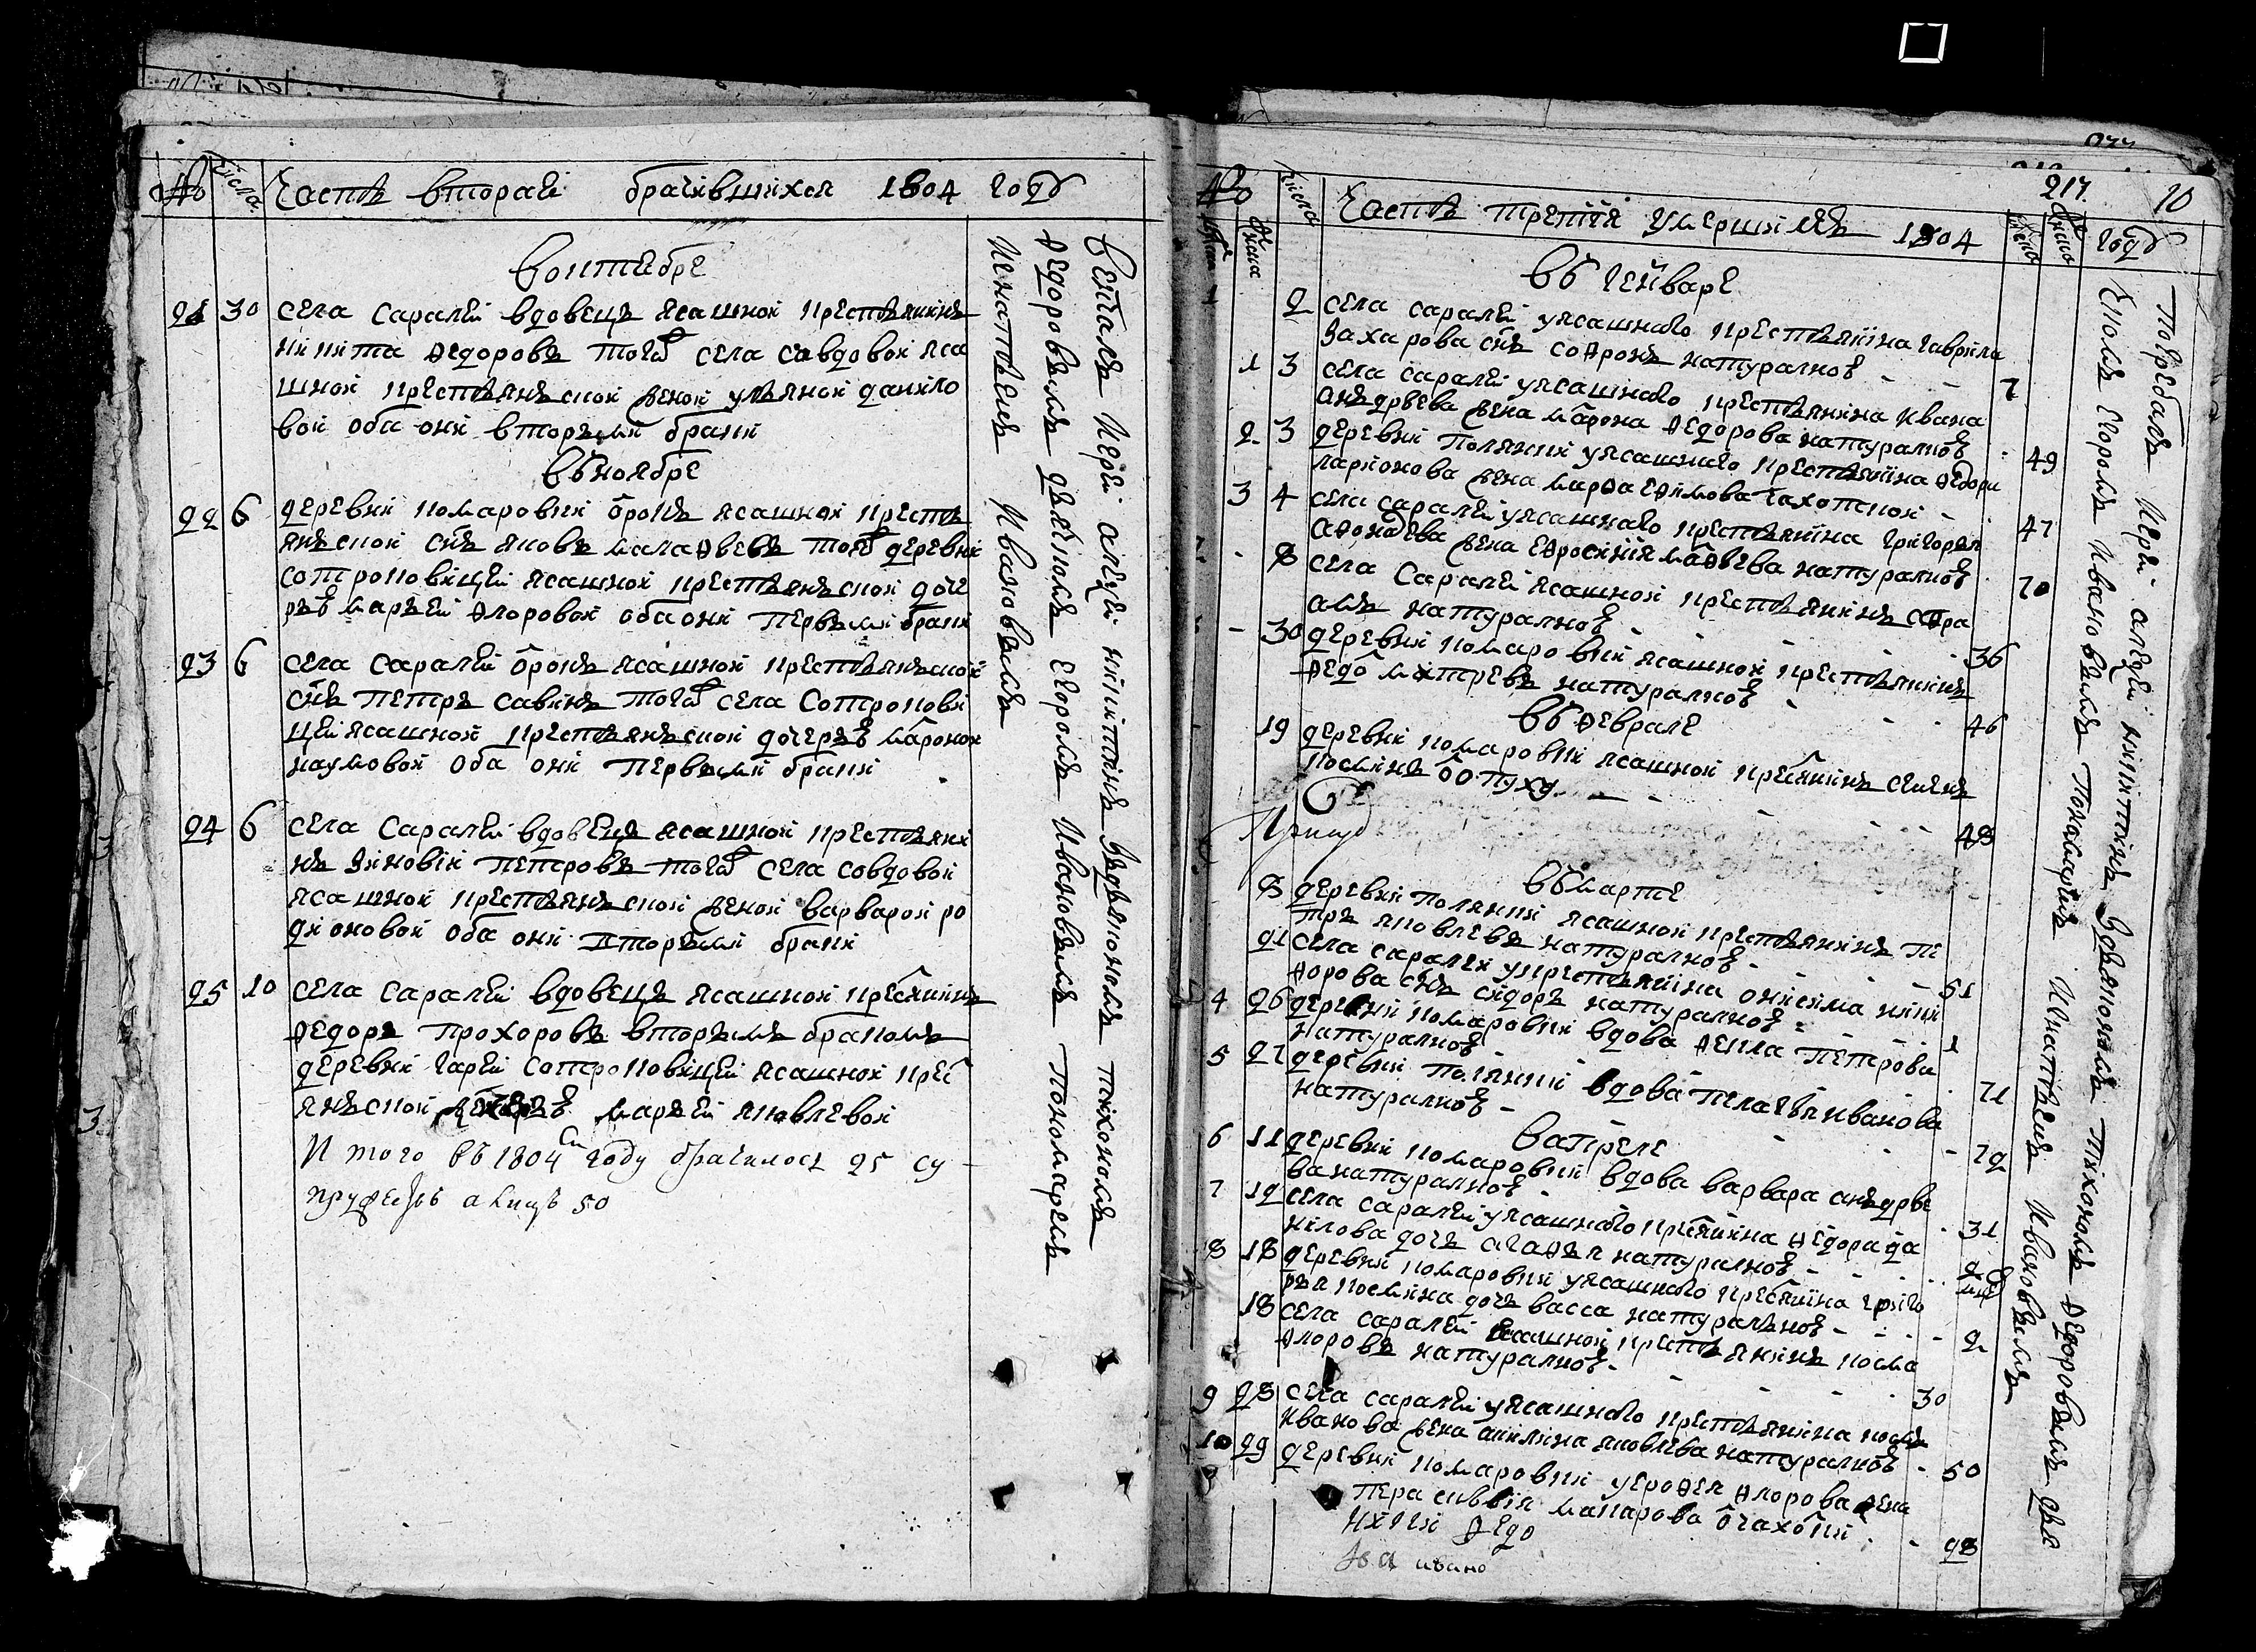 № числа Часть вторая брачившихся 1804 году
Воктябре
21 30 села Саралей вдовецъ ясашной крестьянинъ
никита Федоровъ тогожъ села совдовой яса
шной крестьянъской женой ульяной данило
вой оба они вторымъ бракомъ
Въноябре
22 6 деревни комаровки отрокъ ясашной кресть
янъской сынъ яковъ тойжъ деревни
сотроковицей ясашной крестьянъской доче
рью марьей Флоровой оба они первымъ бракомъ
23 6 села Саралей отрокъ ясашной крестьянъской
сынъ петръ савинъ тогожъ села Сотрокови
цей ясашной крестьянъской дочерью мафроной
наумовой оба они первымъ бракомъ
24 6 села Саралей вдовецъ ясашной крестьяни
нъ Зиновій петровъ тогожъ села совдовой
ясашной крестьянъской женой варварой ро
дионовой оба они вторымъ бракомъ
25 10 села Саралей вдовецъ ясашной крестьянинъ
Федоръ прохоровъ вторымъ бракомъ
деревни гарей сотроковицей ясашной крест
янъской марьей яковлевой
И того въ 1804 году брачилось 25 су
пружествъ а лицъ 50
Венчалъ Иерей алексей никитинъ здьякономъ тихономъ
Федоровымъ дьякомъ егоромъ Ивановымъ пономаремъ
Игнатьемъ Ивановымъ
217 10
№ числа Часть третія умершимъ 1804 году
Въ Генваре
1 2 села саралей уясашнаго крестьянина гаврила
Захарова сынъ софронъ натуралною
7
1 3 села саралей уясашнаго крестьянина Ивана
анъдреева жена мафрона Федорова натуралною
49
2 3 деревни Полянки уясашнаго крестьянина Федора
ларионова жена марфа ефимова чахоткой
47
3 4 села саралей уясашнаго крестьянина григорья
афонасева жена ефросиния мафеева натуралною
70
8 села Саралей ясашной крестьянинъ
натуралною
36
30 деревни комаровки ясашной крестьянинъ
Федоръ натуралною
46
Въ Феврале
19 деревни комаровки ясашной крестьянинъ семенъ
космин отопуху
48
Въ марте
8 деревни полянки ясашной крестьянинъ пе
тръ яковлевъ натуралною
51
21 села саралей укрестьянина онисима ники
форова сынъ сидоръ натуралною
1
4 26 деревни комаровки вдова Фекла петрова
натуралною
71
5 27 деревни полянки вдова пелагея иванова
натуралною
72
Вапреле
6 11 деревни комаровки вдова варвара анъдрее
ва натуралною
31
7 12 села саралей уясашнаго крестьянина Федора да
нилова дочь агафья натуралною
8 18 деревни комаровки уясашнаго крестьянина григо
рья космина дочь васса натуралною
2
18 села саралей ясашной крестьянинъ косма
Флоровъ натуралною
30
9 28 села саралей уясашнаго крестьянина космы
Иванова жена акилина яковлева натуралною
50
10 29 деревни комаровки уерофея Флорова жена
макарова
28
Погребалъ Иерей алексей никитинъ здьякономъ тихономъ Федоровымъ дья
комъ егоромъ Ивановымъ пономаремъ Игнатьемъ Ивановымъ